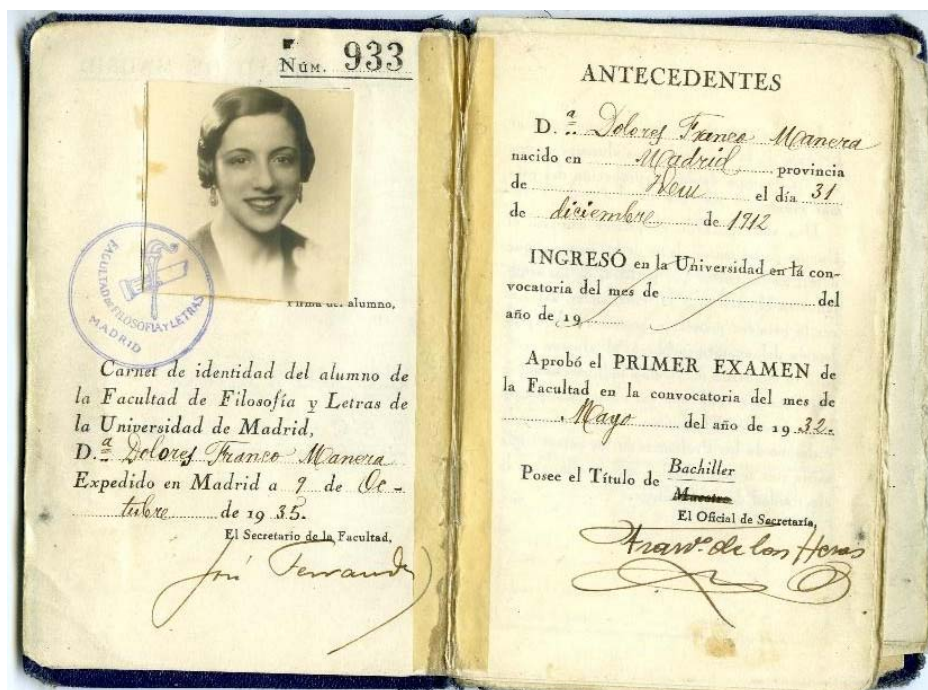 NÚM. 933
FACULTAD DE FILOSOFIA Y LETRAS
MADRID
Firma del alumno,
Carnet de identidad del alumno de
la Facultad de Filosofía y Letras de
la Universidad de Madrid,
D.ª Dolores Franco Manera
Expedido en Madrid a 9 de Oc-
tubre de 1935.
El Secretario de la Facultad,
ANTECEDENTES
D.ª Dolores Franco Manera
nacido en Madrid provincia
de Idem el día 31
de diciembre de 1912
INGRESÓ en la Universidad en la con-
vocatoria del mes de del
año de 19
Aprobó el PRIMER EXAMEN de
la Facultad en la convocatoria del mes de
Mayo del año de 1932.
Posee el Título de Bachiller
Maestro
El Oficial de Secretaría,
de las Heras